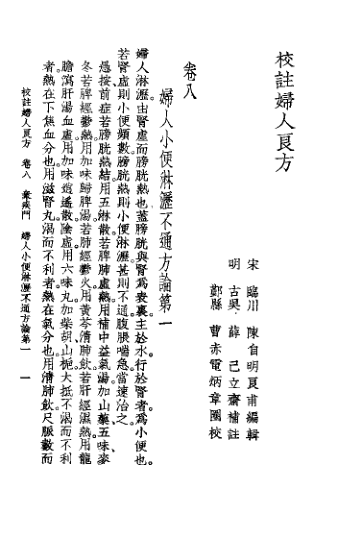 校註婦人良方
宋　臨川　陳自明良甫編輯
明　古吳　薛　己立齋補註
鄞縣　曹赤電炳章圈校
卷八
婦人小便淋瀝不通方論第一
婦人淋瀝由腎虛而膀胱熱也。蓋膀胱與腎爲表裏。主於水。行於腎者爲小便也。
若腎虛則小便頻數。膀胱熱則小便淋瀝。甚則不通。腹脹喘急。當速治之。
愚按前症。若膀胱熱結。用五淋散。若脾肺虛熱。用補中益氣湯加山藥、五味、麥
冬。若脾經鬱熱。用加味歸脾湯。若肺經鬱火。用黃芩清肺飲。若肝經濕熱。用龍
膽瀉肝湯。血虛用加味逍遙散。陰虛用六味丸加柴胡、山梔。大抵不渴而不利
者。熱在下焦血分也。用滋腎丸。渴而不利者。熱在氣分也。用清肺飲。尺脈數而
校註婦人良方　卷八　衆疾門　婦人小便淋瀝不通方論第一　一